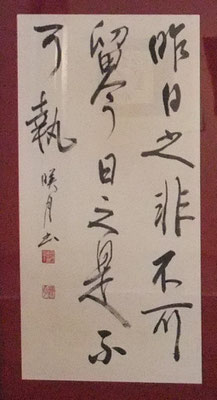 昨日之非不可
留今日之是不
可執
暎月书